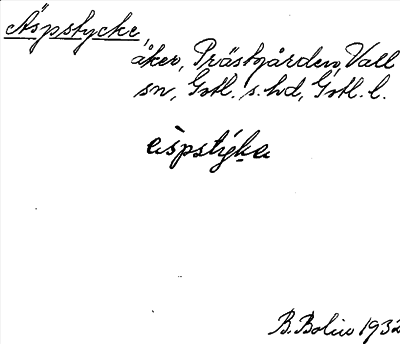 Äspstycke,
åker, Prästgården, Vall
sn, Gotl. s. hd, Gotl. l.
B. Bolin 1932